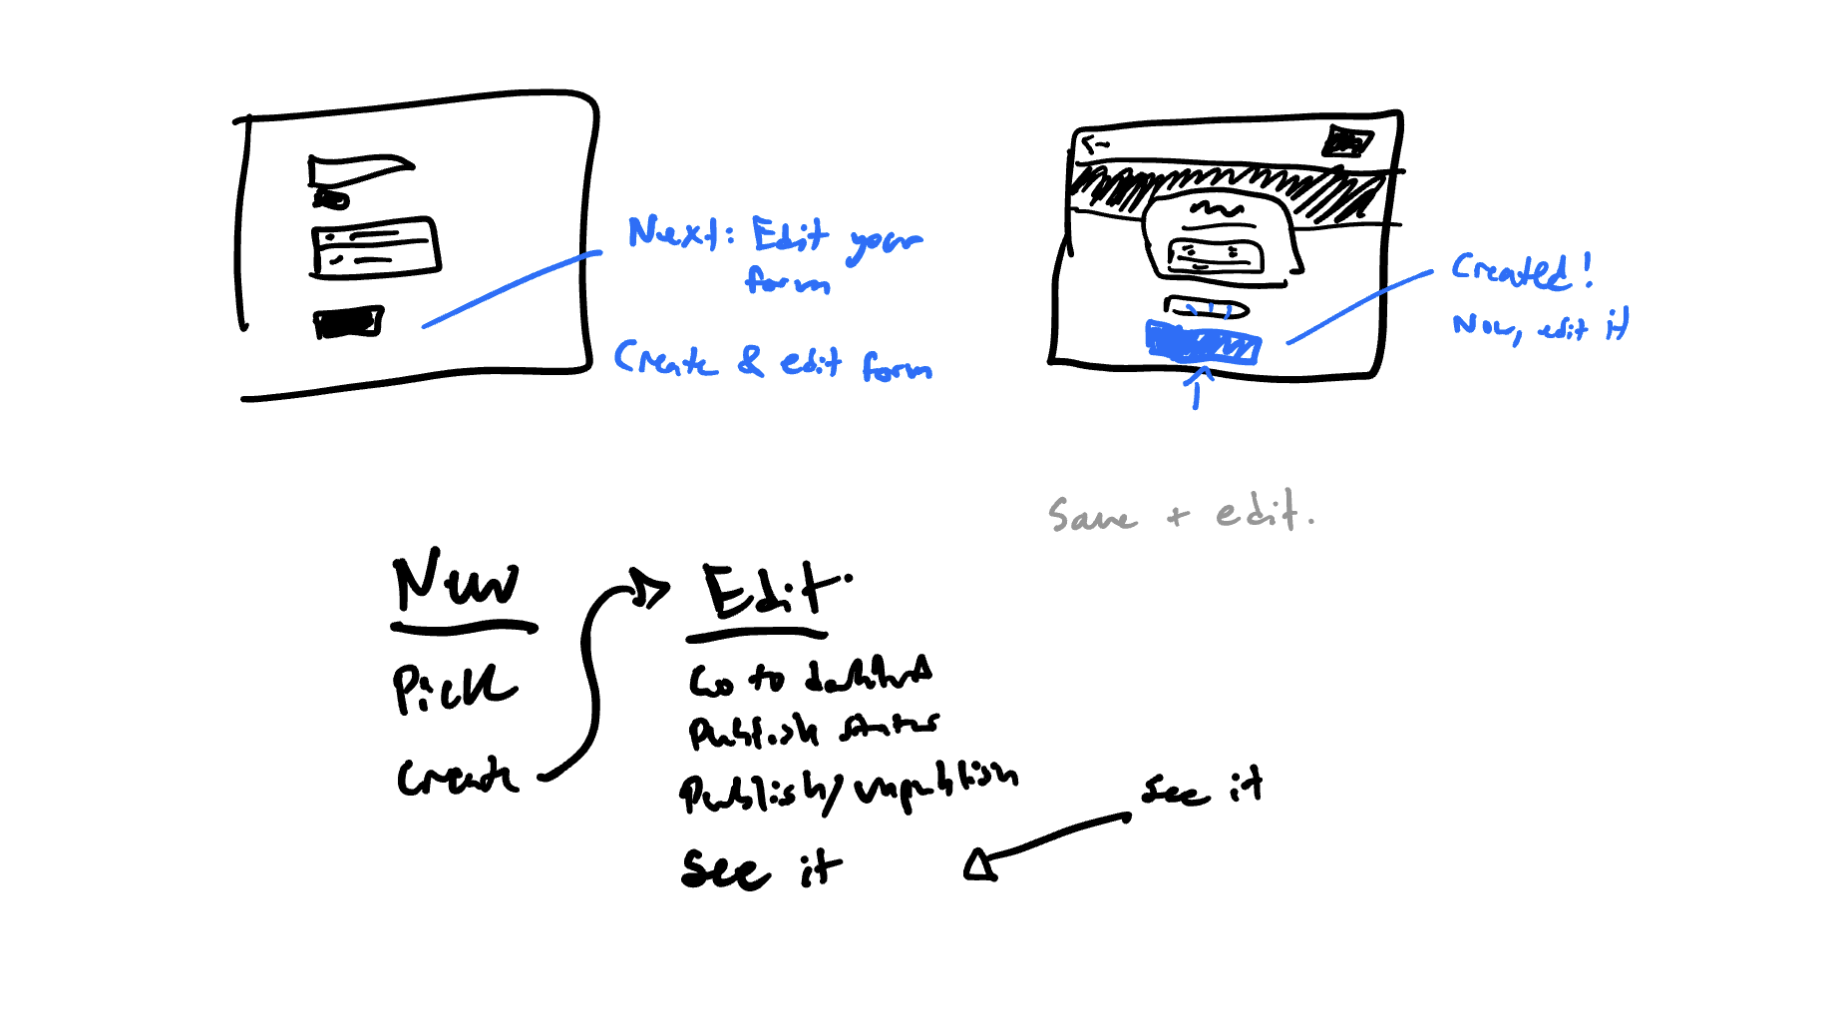 Next: Edit your
form
Create & edit form
Created!
Now, edit it
Save + edit.
New
Pick
Create
Edit.
Go to
Publish status
Publish/unpublish
See it
see it